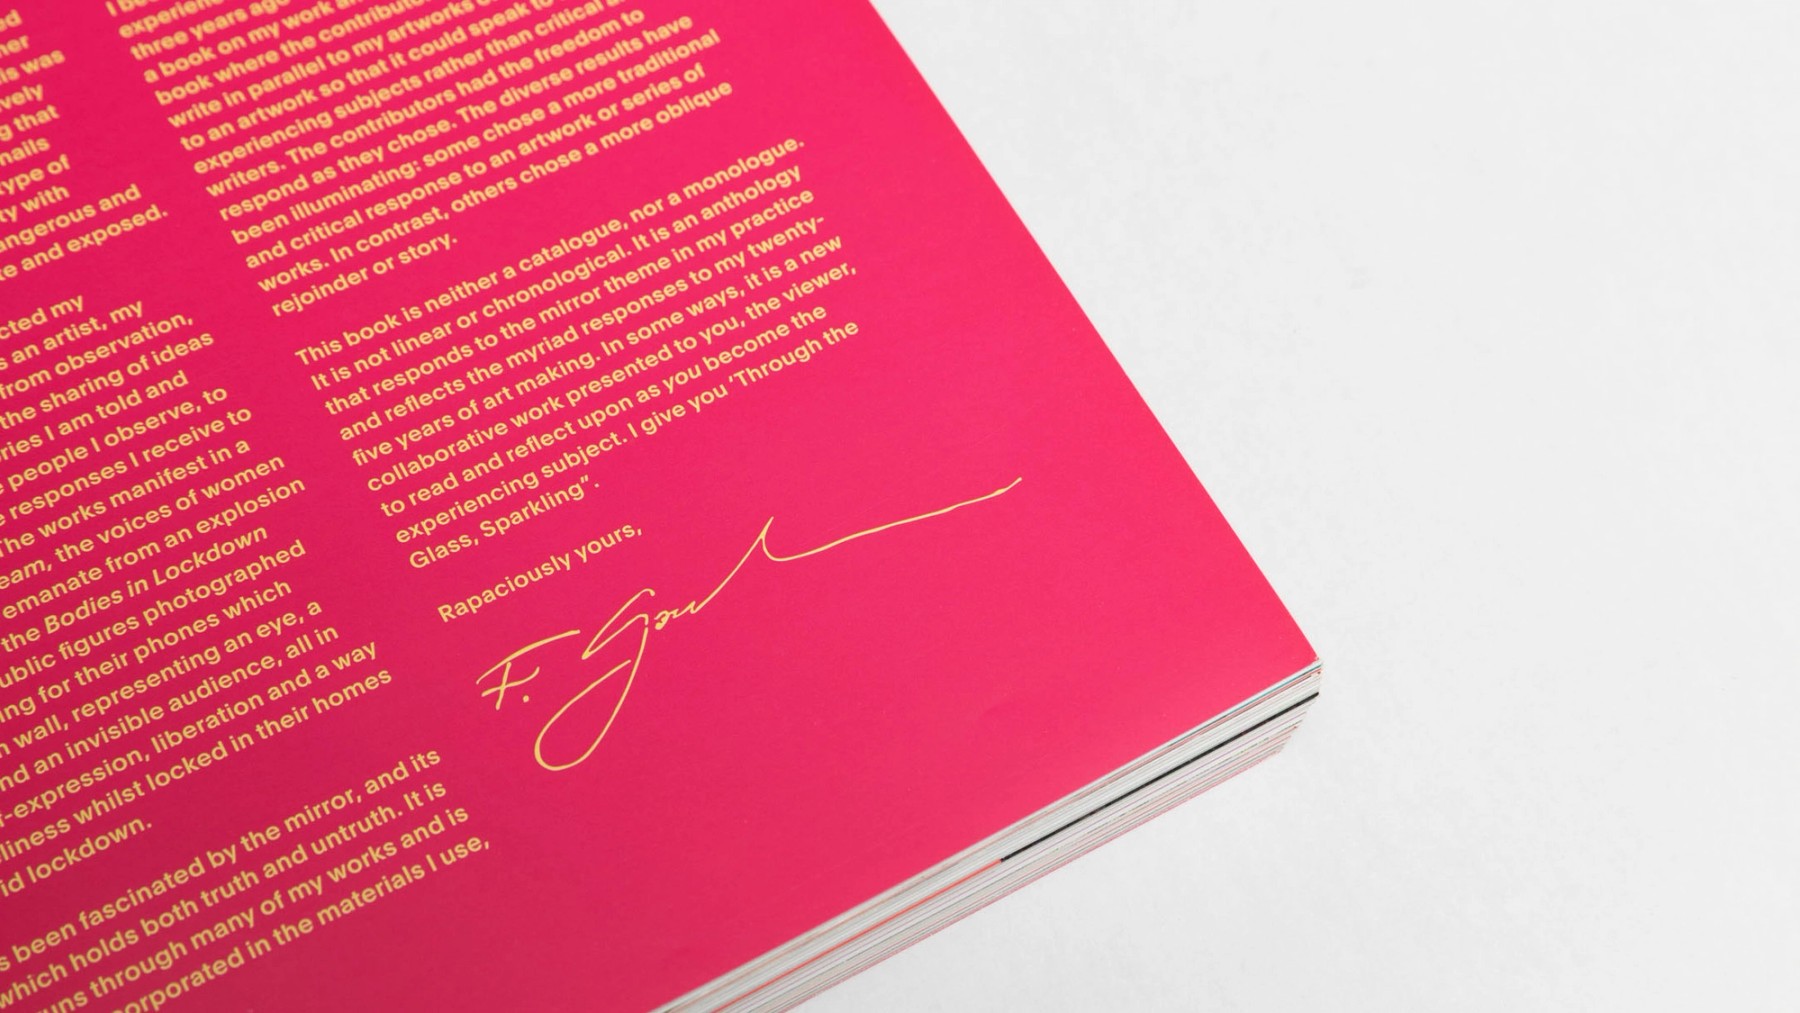 her
is was
vely
g that
nails
type of
ty with
angerous and
e and exposed.
cted my
s an artist, my
from observation,
the sharing of ideas
ries I am told and
e people I observe, to
e responses I receive to
The works manifest in a
eam, the voices of women
emanate from an explosion
the Bodies in Lockdown
ublic figures photographed
ing for their phones which
n wall, representing an eye, a
nd an invisible audience, all in
f-expression, liberation and a way
liness whilst locked in their homes
id lockdown.
s been fascinated by the mirror, and its
which holds both truth and untruth. It is
uns through many of my works and is
orporated in the materials I use,
three years ago
a book on my work an
book where the contributor
write in parallel to my artworks
to an artwork so that it could speak to
experiencing subjects rather than critical a
writers. The contributors had the freedom to
respond as they chose. The diverse results have
been illuminating: some chose a more traditional
and critical response to an artwork or series of
works. In contrast, others chose a more oblique
rejoinder or story.
This book is neither a catalogue, nor a monologue.
It is not linear or chronological. It is an anthology
that responds to the mirror theme in my practice
and reflects the myriad responses to my twenty-
five years of art making. In some ways, it is a new
collaborative work presented to you, the viewer,
to read and reflect upon as you become the
experiencing subject. I give you ‘Through the
Glass, Sparkling”.
Rapaciously yours,
F.